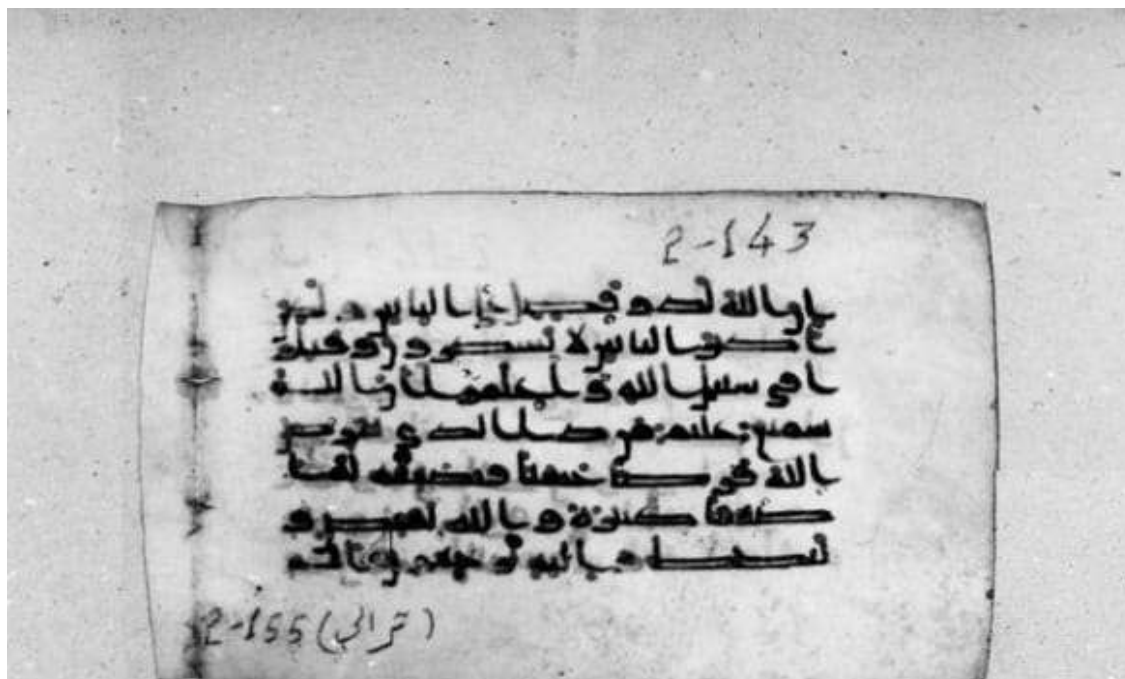 2-143
ان الله لذو فضل على الناس ولكن
اكثر الناس لا يشكرون وقتلو
ا في سبيل الله واعلموا ان الله
سميع عليم من ذا الذي يقرض
الله قرضا حسنا فيضعفه له ا
ضعفا كثيرة والله يقبض و
يبسط واليه ترجعون الم
2-155